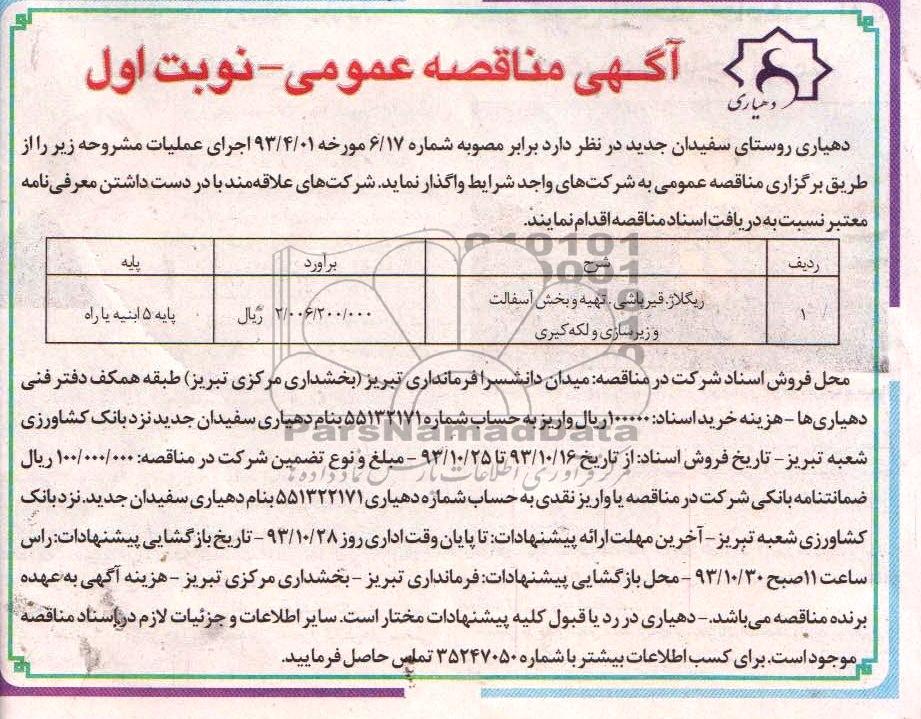 آگهی مناقصه عمومی - نوبت اول
دهیاری
دهیاری روستای سفیدان جدید در نظر دارد برابر مصوبه شماره ۶/۱۷ مورخه ۹۳/۴/۰۱ اجرای عملیات مشروحه زیر را از
طریق برگزاری مناقصه عمومی به شرکت‌های واجد شرایط واگذار نماید. شرکت‌های علاقه‌مند با در دست داشتن معرفی‌نامه
معتبر نسبت به دریافت اسناد مناقصه اقدام نمایند.
ردیف شرح برآورد پایه
۱ ریگلاژ. قیرپاشی. تهیه و پخش آسفالت و زیرسازی و لکه گیری ۲/۰۰۶/۲۰۰/۰۰۰ ریال پایه ۵ ابنیه یا راه
محل فروش اسناد شرکت در مناقصه: میدان دانشسرا فرمانداری تبریز (بخشداری مرکزی تبریز) طبقه همکف دفتر فنی
دهیاری‌ها - هزینه خرید اسناد: ۱۰۰۰۰۰ ریال واریز به حساب شماره ۵۵۱۳۲۲۱۷۱ بنام دهیاری سفیدان جدید نزد بانک کشاورزی
شعبه تبریز - تاریخ فروش اسناد: از تاریخ ۹۳/۱۰/۱۶ تا ۹۳/۱۰/۲۵ - مبلغ و نوع تضمین شرکت در مناقصه: ۱۰۰/۰۰۰/۰۰۰ ریال
ضمانتنامه بانکی شرکت در مناقصه یا واریز نقدی به حساب شماره دهیاری ۵۵۱۳۲۲۱۷۱ بنام دهیاری سفیدان جدید. نزد بانک
کشاورزی شعبه تبریز - آخرین مهلت ارائه پیشنهادات: تا پایان وقت اداری روز ۹۳/۱۰/۲۸ - تاریخ بازگشایی پیشنهادات: راس
ساعت ۱۱ صبح ۹۳/۱۰/۳۰ - محل بازگشایی پیشنهادات: فرمانداری تبریز - بخشداری مرکزی تبریز - هزینه آگهی به عهده
برنده مناقصه می‌باشد. - دهیاری در رد یا قبول کلیه پیشنهادات مختار است. سایر اطلاعات و جزئیات لازم در اسناد مناقصه
موجود است. برای کسب اطلاعات بیشتر با شماره ۳۵۲۴۷۰۵۰ تماس حاصل فرمایید.
ParsNamadData